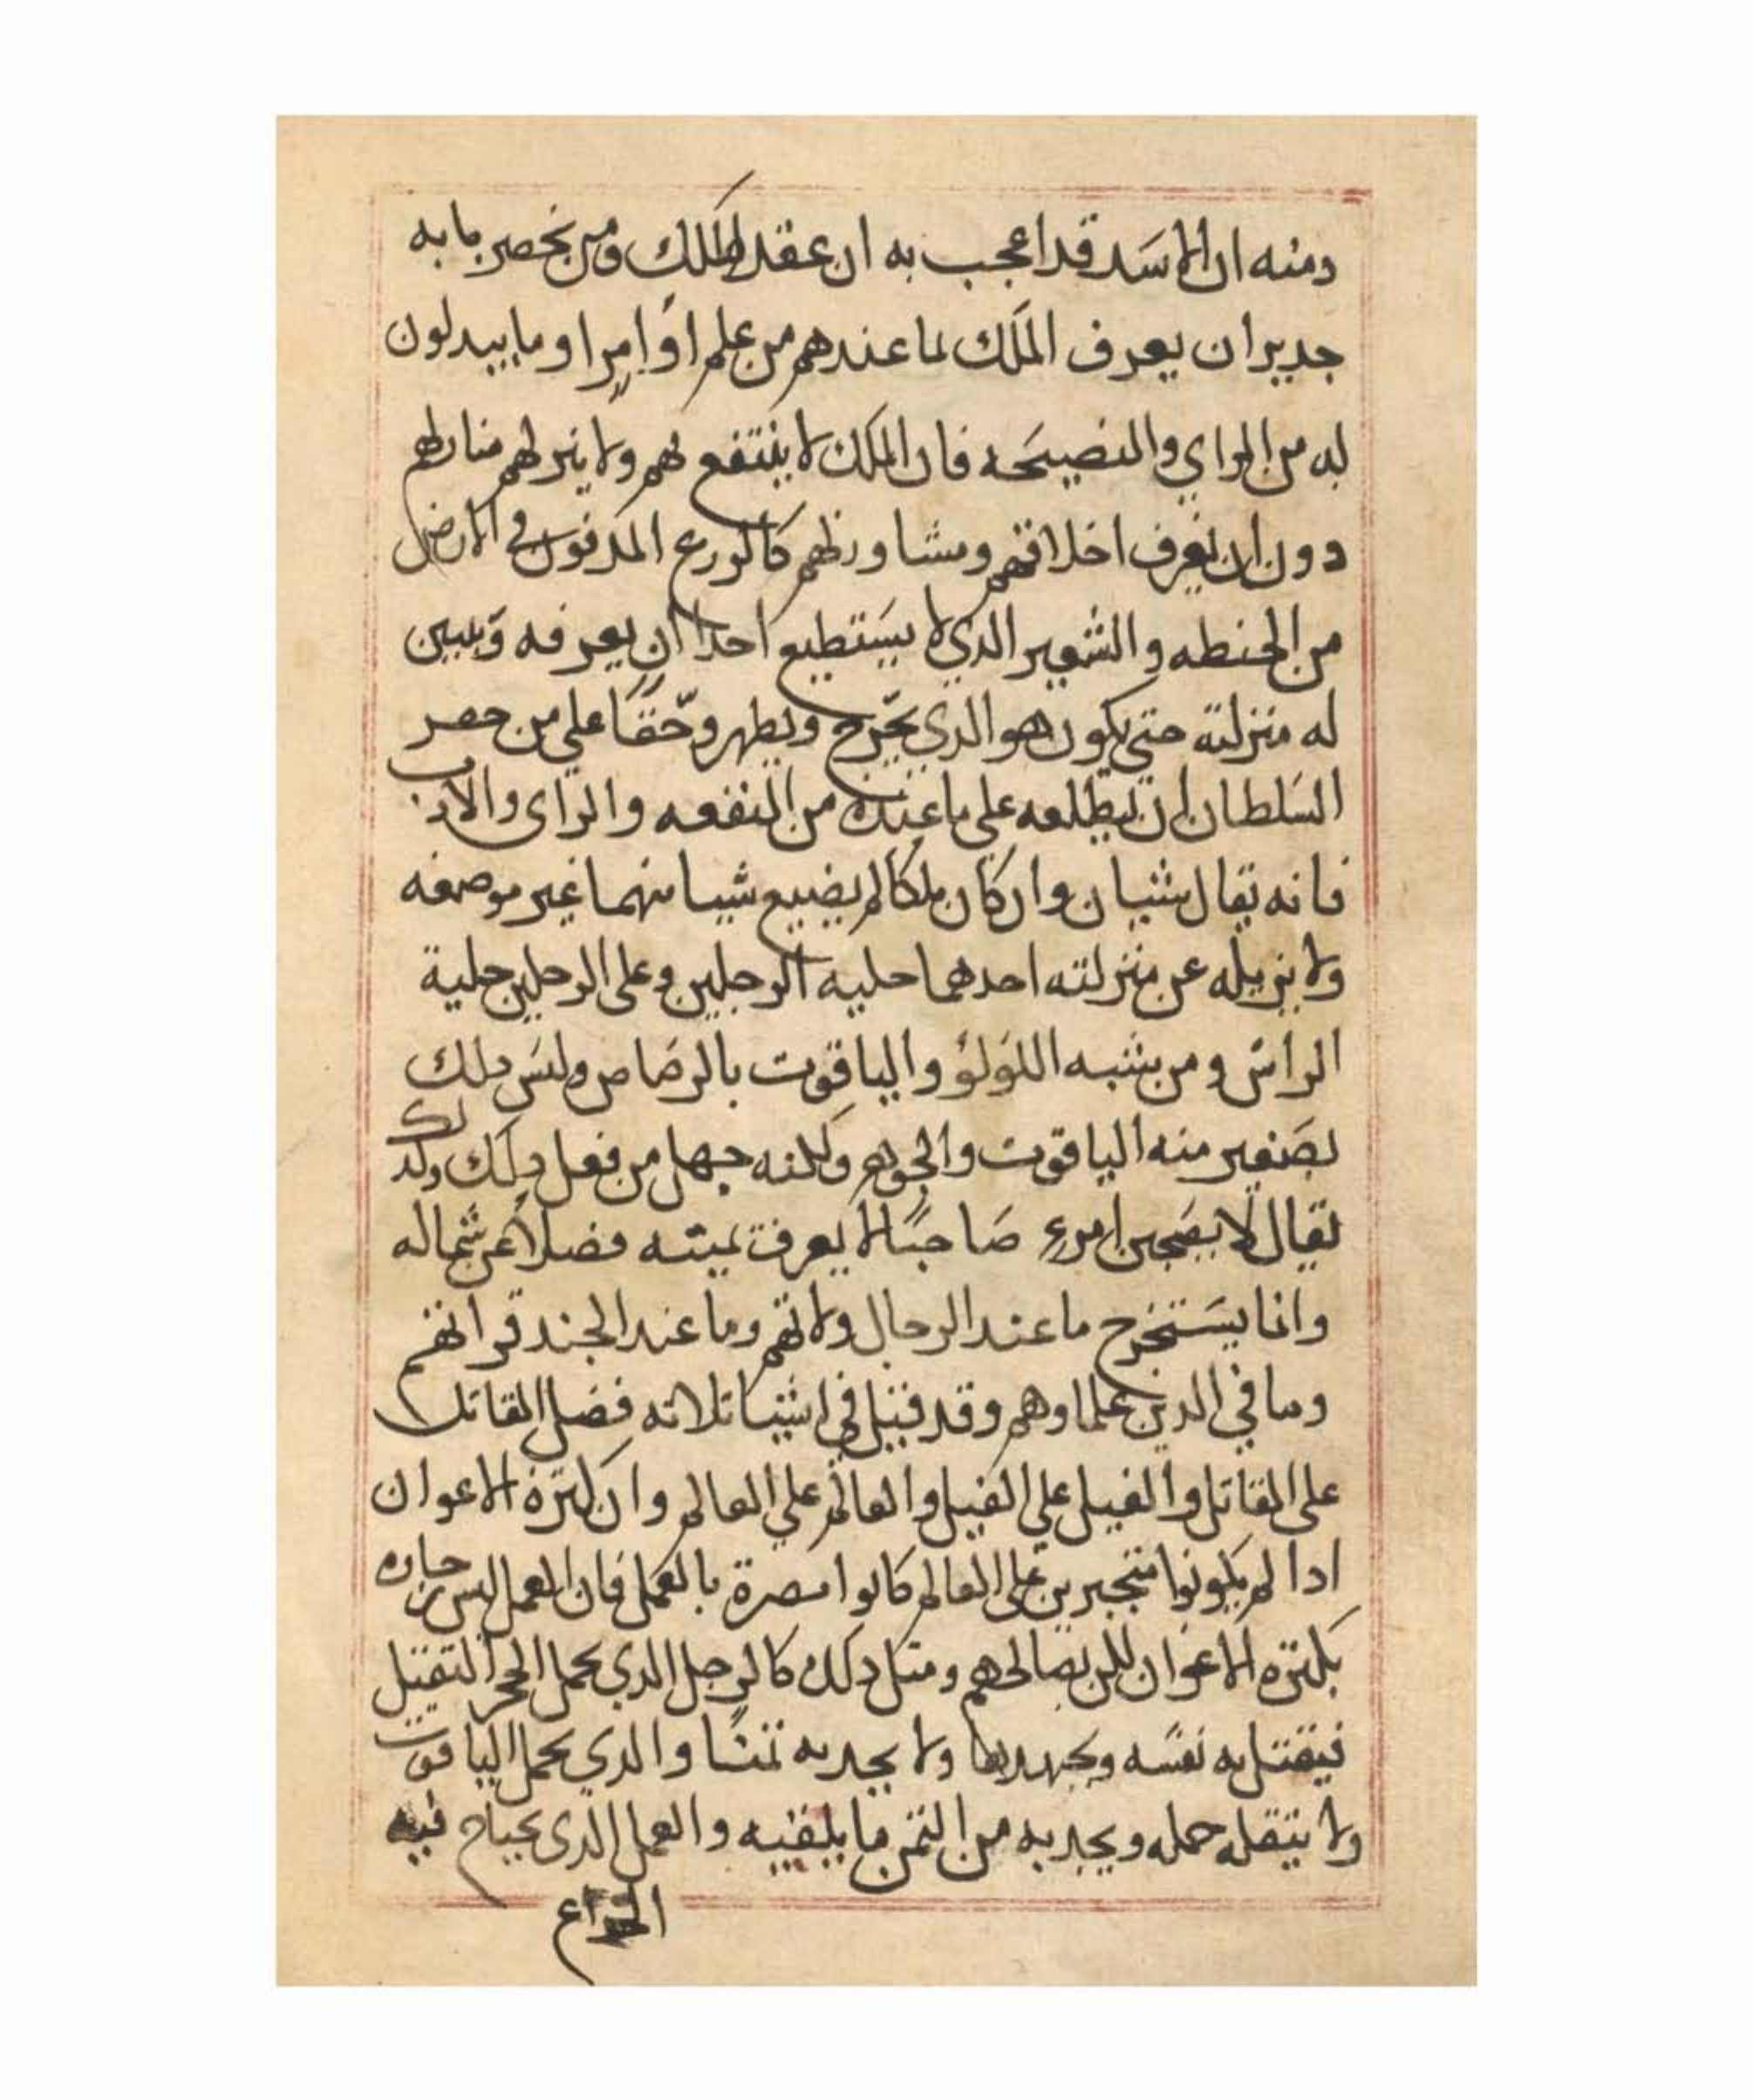 دمنه ان الاسد قد اعجب به ان عقد الملك ومن بحصر بابه
جدير ان يعرف الملك لما عندهم من علم او امرا وما يبدلون
له من الراي والنصيحه فان الملك لا ينتفع بهم ولا ينزلهم منازلهم
دون ان يعرف اخلاقهم ومشاورتهم كالزرع المدفون في الارض
من الحنطه والشعير الدي لا يستطيع احدا ان يعرفه ويبين
له منزلته حتي يكون هو الدي يخرج ويطهر وحقا علي من حصر
السلطان ان يطلعه علي ما عنده من المنفعه والراي والادب
فانه يقال شيان وان كان ملكا لم يضيع شيا منهما غير موصعه
ولا يزيله عن منزلته احدهما حليه الرجلين وعلي الرجلين حلية
الراس ومن يشبه اللولؤ والياقوت بالرصاص وليس دلك
بصغير منه الياقوت والجوهر ولكنه جهل من فعل دلك وكدلك
يقال لا يصحبن امرء صاحبا لا يعرف يمينه فضلا عن شماله
وانما يستخرج ما عند الرجال ولاتهم وما عند الجند قرانهم
وما في الدين علماوهم وقد قيل في اشيا ثلاثه فضل القاتل
علي القاتل والفيل علي الفيل والعالم علي العالم وان كثرة الاعوان
ادا لم يكونوا متجبرين علي العالم كانوا مصرة بالعمل فان العمل ليس
بكثره الاعوان لكن بصالحهم ومثل دلك كالرجل الدي يحمل الحجر الثقيل
فيقتل به نفسه ويجهدها ولا يجد به ثمنا والدي يحمل الياقوت
ولا يثقله حمله ويجد به من الثمن ما يلقيه والعمل الدي يحتاج فيه